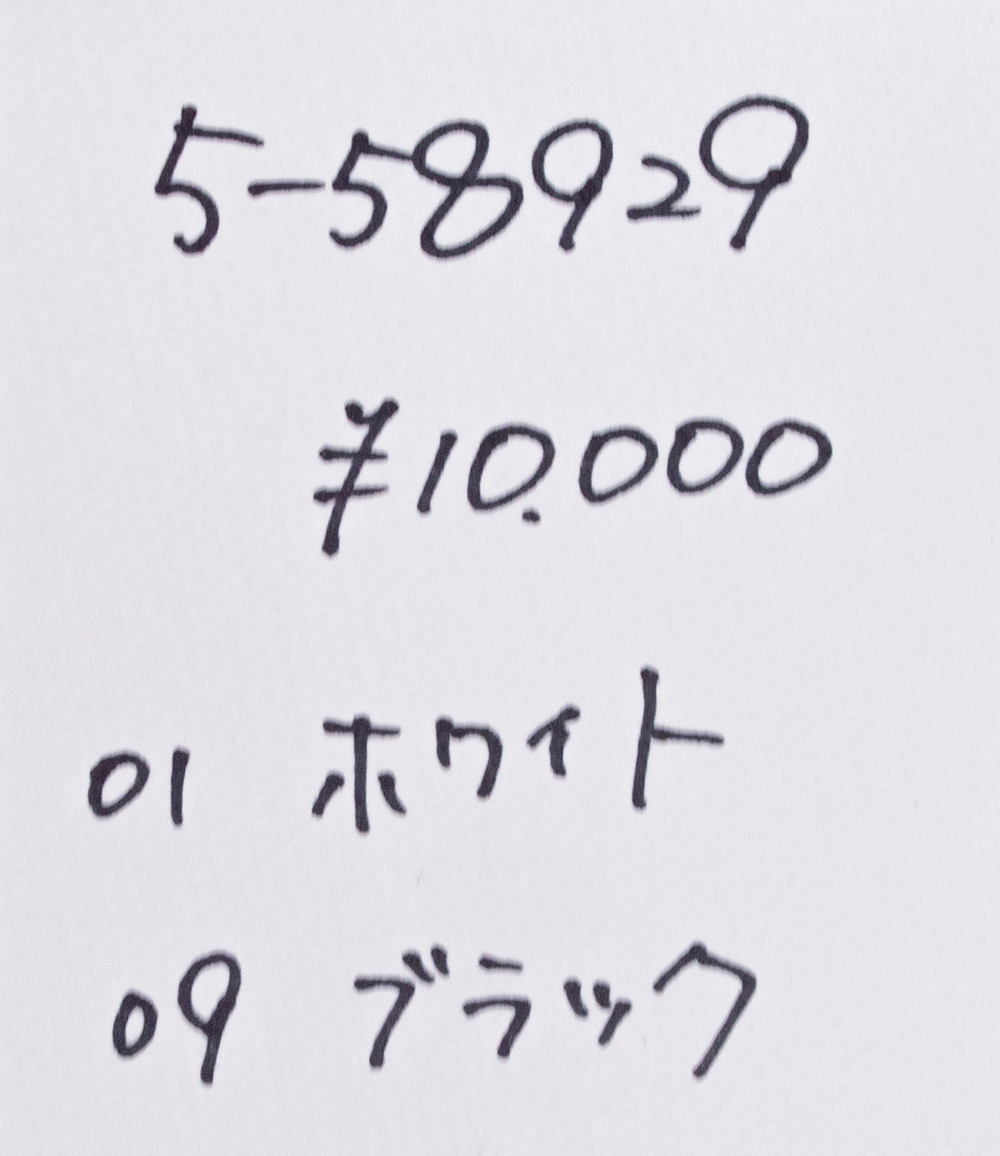 5-58929
¥10.000
01 ホワイト
09 ブラック